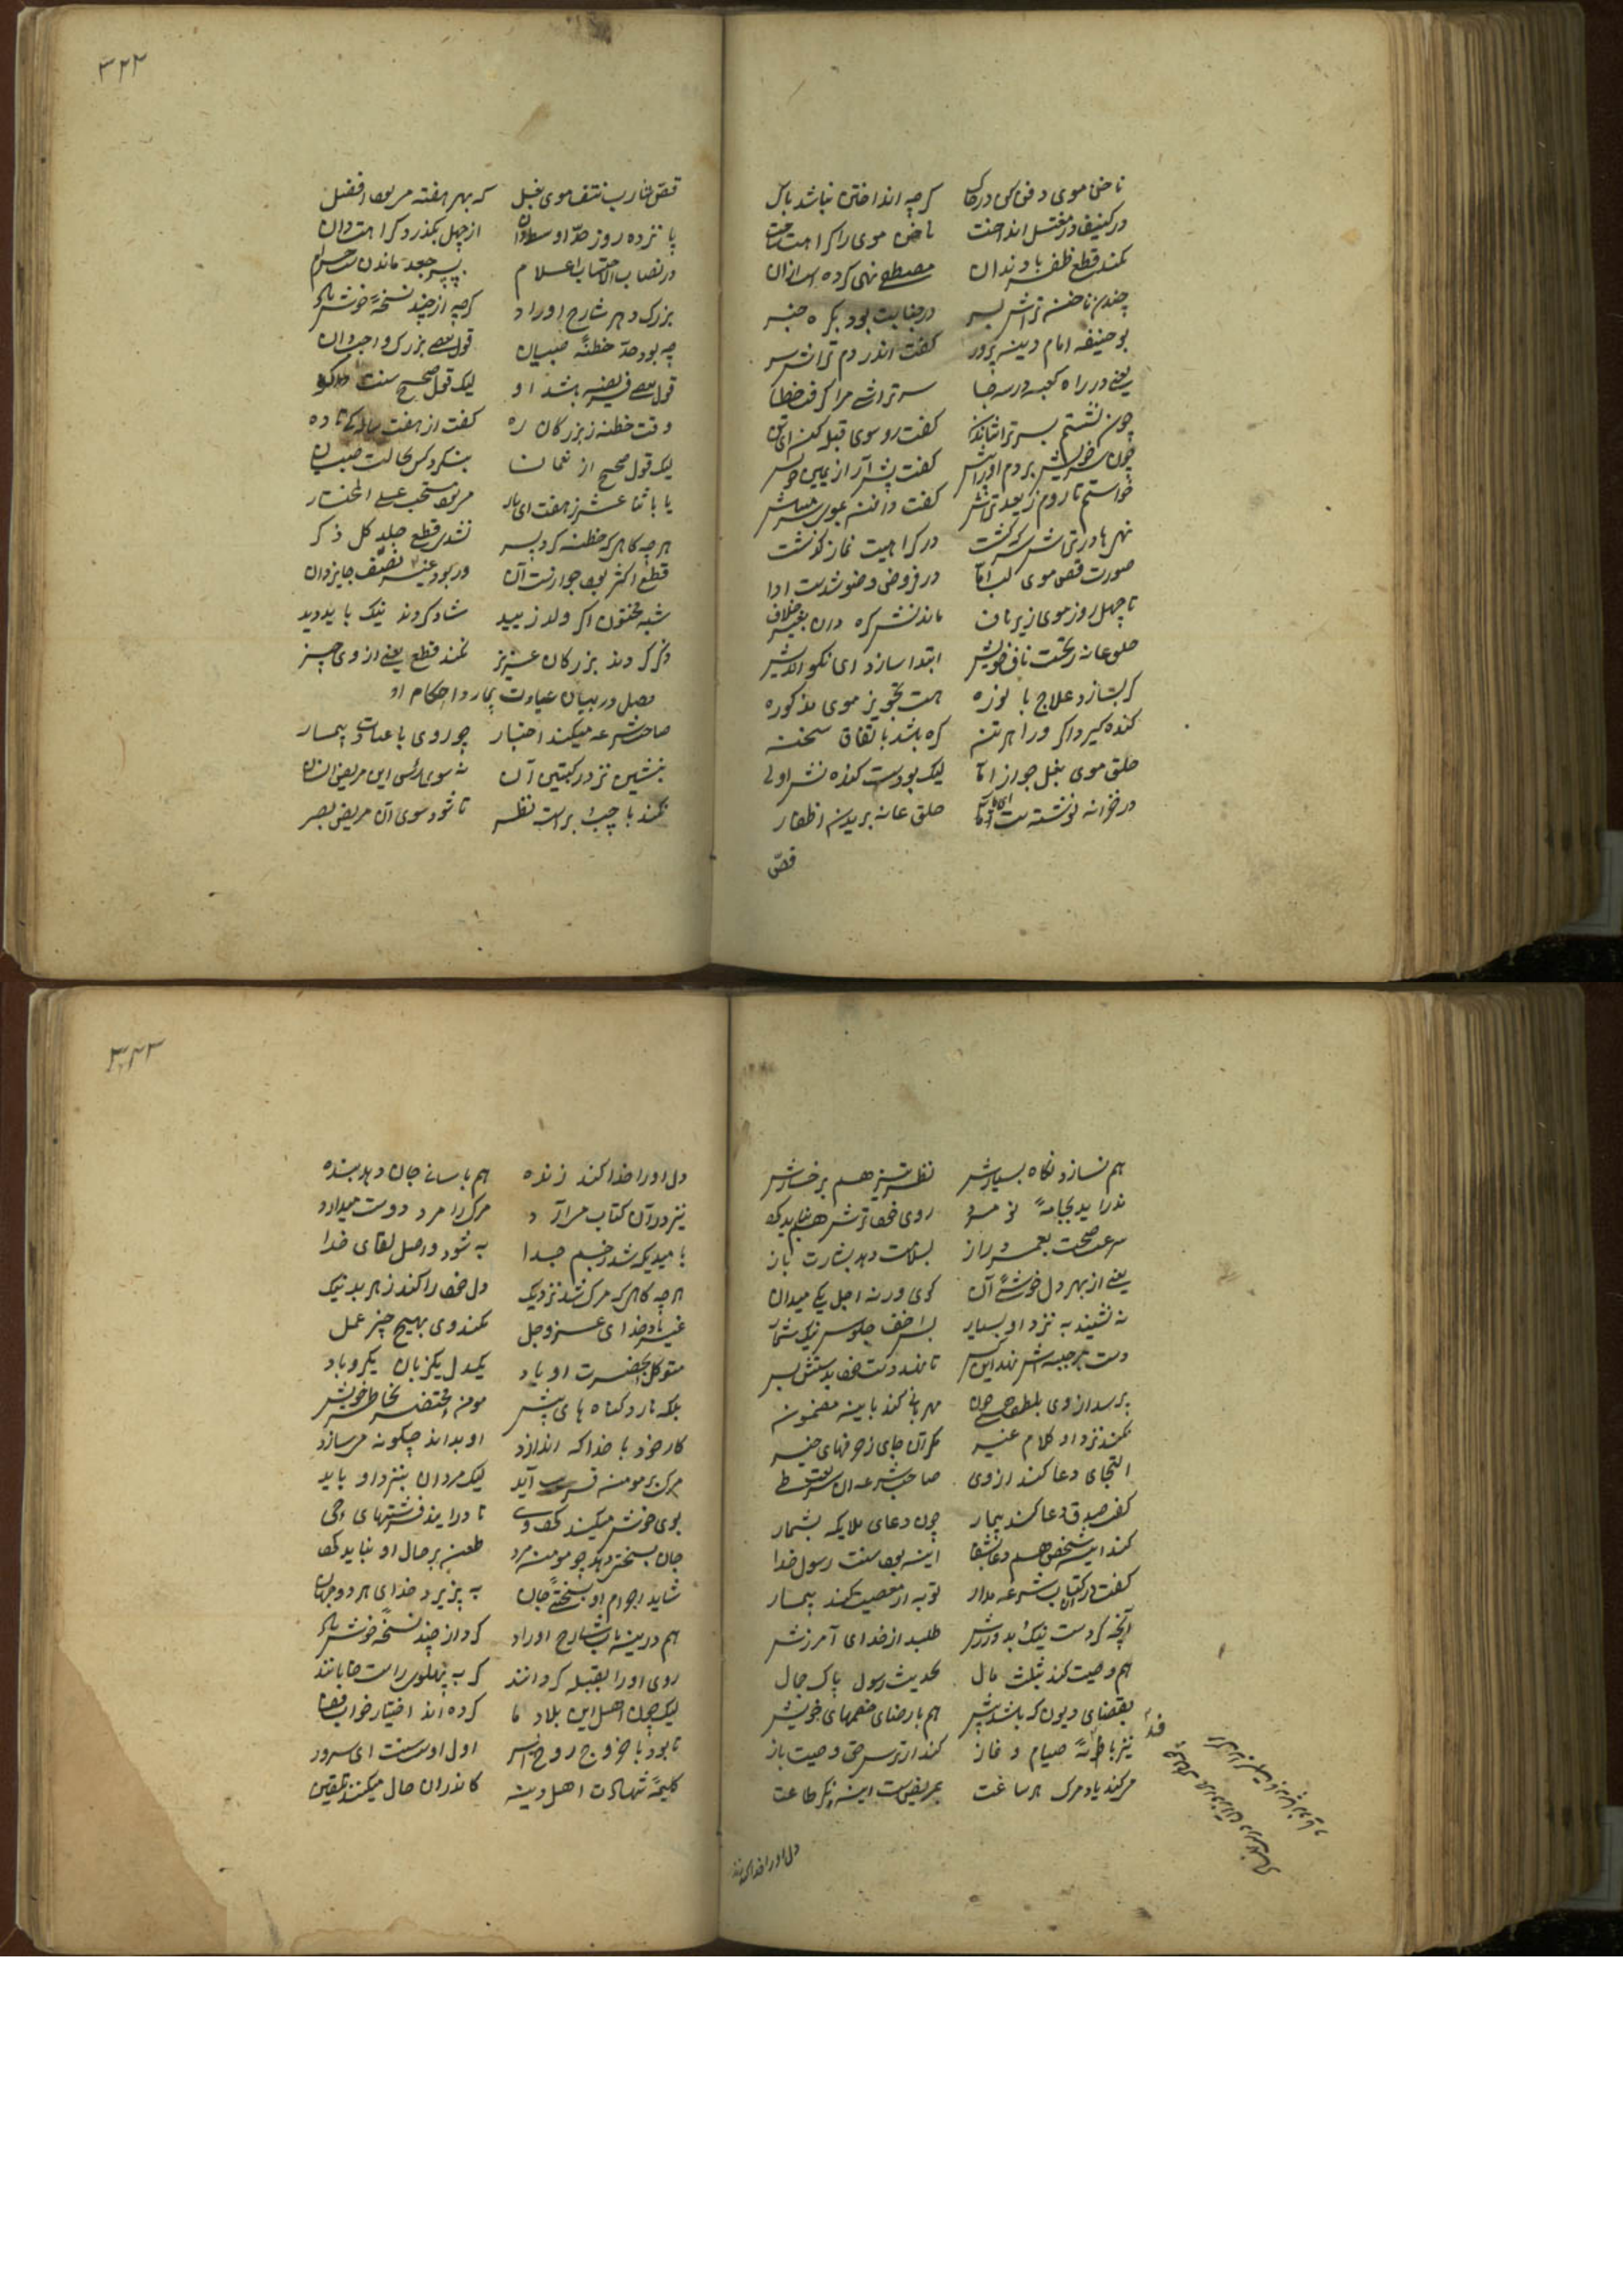 ناخن و موی دفن کن در خاک گرچه انداختن نباشد باک
در کنیف و در مغتسل انداخت ناخن موی را کراهت ساخت
نکند قطع ظفر با دندان مصطفی نهی کرده است ازان
چیدن ناخن تراش سر در جنابت بود بکره خبر
بو حنیفه امام دینه پرور گفت اندر دم تراش سر
یعنی در راه کعبه در سه جا سر تراشی مرا گرفت خطا
چون نشستم بسر تراشانیدن گفت رو سوی قبله کن ای
چون سر خویش بردم اورا پیش گفت پیش آر از یمین خویش
خواستم تا روم ز بعد تراش گفت دافن بموی سر میباش
در کراهیت نماز گذشت
صورت قص موی لب اما در فروض وضو شدست ادا
تا چهل روز موی زیر ناف ماندنش کره دان بغیر خلاف
حلق عانه ز تحت ناف خویش ابتدا سازد ای نکو اندیش
گر بسازد علاج با نوره هست تجویز موی مذکوره
کنده گیرد اگر ورا بر تن کره باشد باتفاق سخن
حلق موی بغل جواز اما لیک بودست کندنش اولی
در خزانه نوشته است حلق عانه بریدن اظفار
قص
۳۲۲
قص شارب نتف موی بغل که بهر هفته مر بود افضل
پانزده روز حد اوسط دان از چهل بگذرد کراهت دان
در نصاب الاحتساب اعلام پسر جعد ماندن است حرام
بزرگ دهر شارح اوراد گرچه از چند نسخهٔ خوش یاد
چه بود حد خطنهٔ صبیان قول بعضی بزرگ واجب دان
قول بعضی فریضه باشد او لیک قول صحیح سنت گو
وقت خطنه ز بزرگان ره گفت از هفت ساله تا ده
لیک قول صحیح از نعمان بنگرد کس بحالت صبیان
یا باثنا عشر ز هفت ای یار مر بود مستحب علی المختار
هر چه گاهی که خطنه کرد پسر نشدی قطع جلد کل ذکر
قطع اکثر بود جوازست آن ور بود غیر نصف جایز دان
شبه مختون اگر ولد زیید شاد گردند نیک باید دید
ذکر کردند بزرگان عزیز نکند قطع یعنی از وی چیز
فصل در بیان عیادت بیمار و احکام او
صاحب شرعه میکند اخبار چو روی با عیادت بیمار
بنشین نزد رکبتین آن نه سوی راس این مریض نشان
نکند با چپ براست نظر تا شود سوی آن مریض بصر
هم نسازد نگاه بسیارش نظر تیز هم بر خسارش
ندراید بجامهٔ نو مرد روی خود ترش هم نباید کرد
سرعت صحت بعمر دراز بسلامت دهد بشارت باز
یعنی از بهر دل خوشئ آن گوی ورنه اجل یکی میدان
نه نشیند به نزد او بسیار بس اخف جلوس نیک شمار
دست بر جبینش نهد این کس تا نهد دست خود بدستش بس
پرسد از وی بلطف حال چون مهربانی کند باین مضمون
نکند نزد او کلام غیر مگر آن جای زحرفهای خیر
التجای دعا کند از وی صاحب شرعه ان شریعت طی
کف صدق دعا کند بیمار چون دعای ملایکه بشمار
کند این شخص هم دعا بشفا این بود سنت رسول خدا
گفت در آن کتاب شرعه مدار توبه از معصیت کند بیمار
آنچه کردست نیک بد ورزش طلبد از خدای آمرزش
هم وصیت کند بثلث مال بحدیث رسول پاک جمال
بقضای دیون که باشد پیش هم بارضای خصمهای خویش
نیز با طاعهٔ صیام و نماز کند از ترس حق وصیت باز
مر کند یاد مرگ هر ساعت بمریض است این نکو طاعت
دل اورا خدا کند
۳۲۳
دل اورا خدا کند زنده هم باسانی جان دهد بنده
نیز در آن کتاب مر آرد مرگ را مرد دوست میدارد
با میدیکه شد ز جسم جدا به شود واصل لقای خدا
هر چه گاهی که مرگ شد نزدیک دل خود را کند ز هر بد نیک
غیر یاد خدای عز و جل نکند وی بهیچ چیز عمل
متوکل بحضرت او باد یکدل یکزبان یکرو باد
بلکه نارد گناه های پیش مومن محتضر بخاطر خویش
کار خود با خدا که اندازد او بداند چگونه مر سازد
مرگ بر مومن قریب آید لیک مردان بنزد او باید
بوی خوش میکنند تا درایند فرشتهای
جان بسختی دهد چو مومن مرد طعن بر حال او نباید کرد
شاید اجرام او بسختئ جان به پزیرد خدای هر دو جهان
هم درین باب شارح اوراد کرد از چند نسخه خوش یاد
روی اورا بقبله گردانند گر به پهلوی راست خوابانند
لیک چون اهل این بلاد ما کرده اند اختیار خواب قفا
تا بود با خروج روح آسان اول اوست ای سرور
کلمهٔ شهادت اهل دین کاندران حال میکنند تلقین